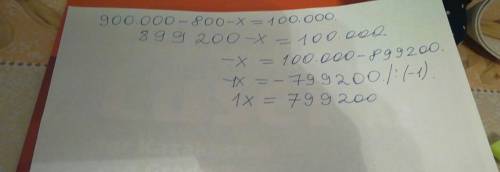 900.000-800-x=100.000.
899 200-x=100.000
-x=100.000-899200.
-1x=-799200./:(-1).
1x=799200